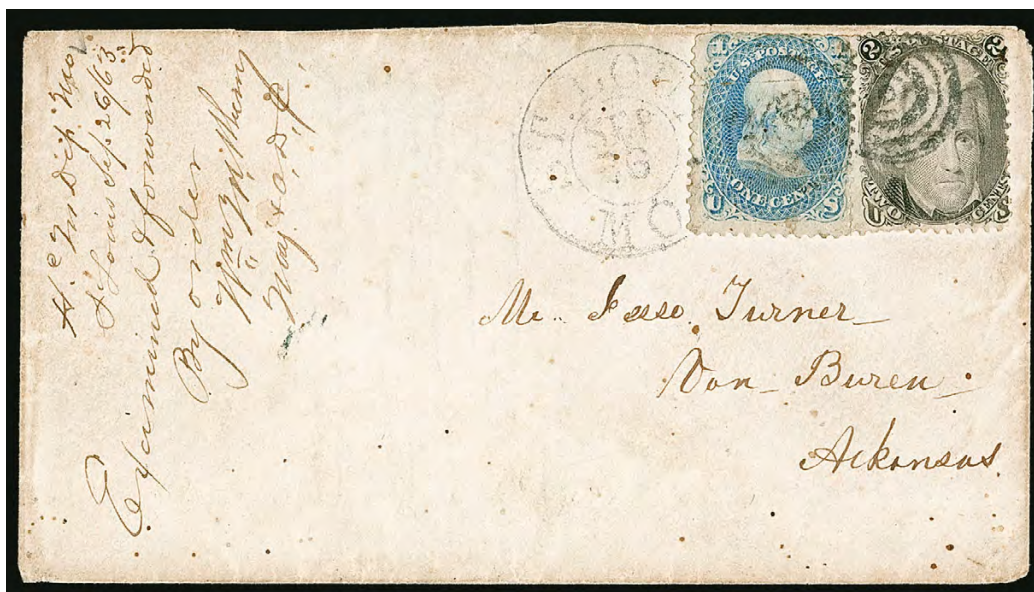 Hd Qrs Dis Mo
St Louis Sep 26/63
Examined & forwarded
By order
Maj & A.D.C.
ST. LOUIS
SEP
26
MO
U.S. POSTAGE
ONE CENT
U
S
2
2
U.S. POSTAGE
TWO
CENTS
U
S
Mr. Jesse Turner
Van Buren
Arkansas